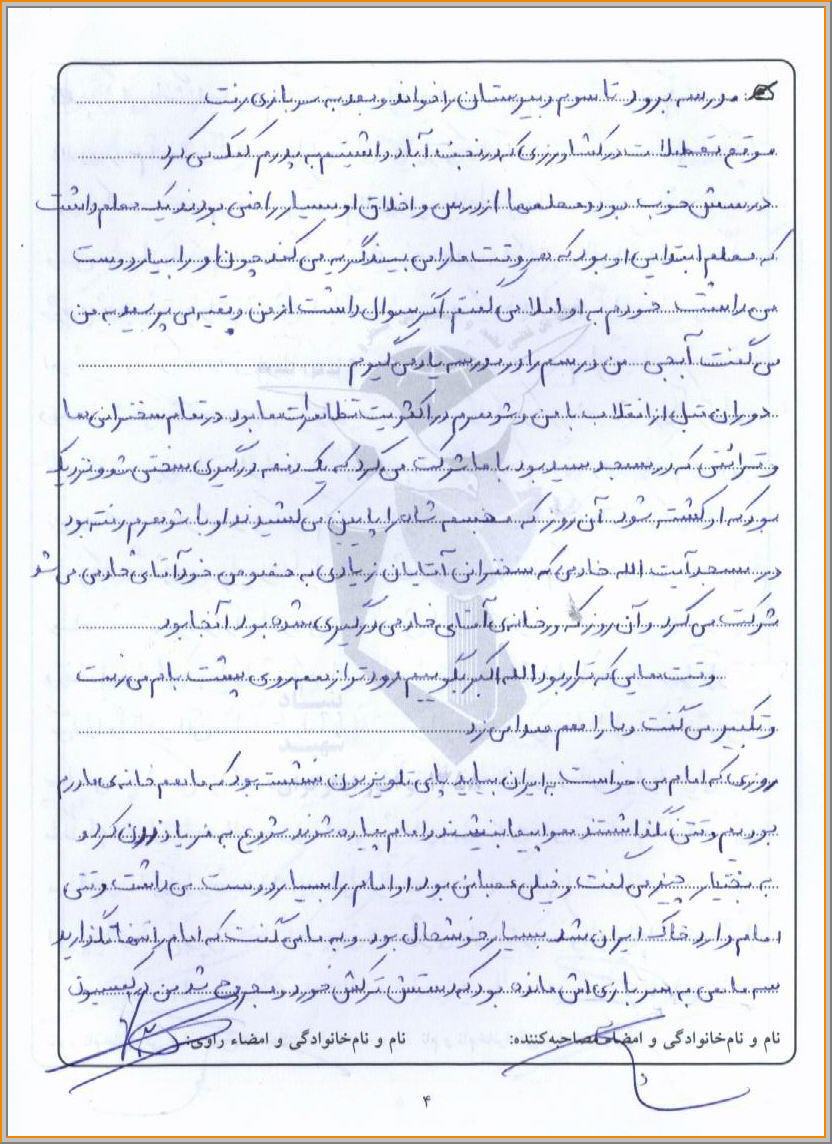 مدرسه برود تا سوم دبیرستان را خواند و بعد به سربازی رفت
موقع تعطیلات در کشاورزی که در نجف آباد داشتیم به پدرم کمک می کرد
درسش خوب بود و معلمها از درس و اخلاق او بسیار راضی بودند یک معلم داشت
که معلم ابتدایی او بود که هر وقت ما را می بیند گریه می کند چون او را بسیار دوست
می داشت خودم به او املا می گفتم اگر سوال داشت از من و بقیه می پرسید به من
می گفت آبجی من درسم را در مدرسه یاد می گیرم
دوران قبل از انقلاب با من و شوهرم در اکثریت تظاهرات ها بود در تمام سخنرانی ها
و قرائتی که در مسجد سید بود با ما شرکت می کرد که یک دفعه درگیری سختی شد و نزدیک
بود که او کشته شود آن روز که مجسمه شاه را پایین می کشیدند او با شوهرم رفته بود
در مسجد آیت الله خادمی که سخنرانی آقایان زیادی به خصوص خود آقای خادمی می شد
شرکت می کرد و آن روز که در خانه ی آقای خادمی درگیری شده بود آنجا بود
وقت هایی که قرار بود الله اکبر بگوییم زودتر از همه روی پشت بام می رفت
و تکبیر می گفت و ما را هم صدا می زد
روزی که امام می خواست به ایران بیاید پای تلویزیون نشسته بود که ما هم خانه ی مادرم
بودیم وقتی نگذاشتند هواپیما بنشیند و امام پیاده شوند شروع به فریاد زدن کرد و
به بختیار چیز می گفت و خیلی عصبانی بود او امام را بسیار دوست می داشت وقتی
امام وارد خاک ایران شد بسیار خوشحال بود و به ما می گفت که امام را تنها نگذارید
سه ماهی به سربازی اش مانده بود که دستش ترکش خورد و مجروح شد من در کمسیون
نام و نام خانوادگی و امضاء مصاحبه کننده:
نام و نام خانوادگی و امضاء راوی:
۴